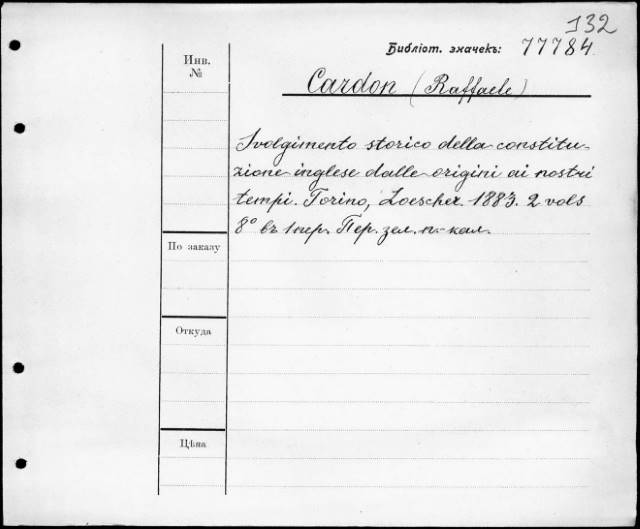 132
Библіот. значекъ: 77784
Инв. №
Cardon (Raffaele)
Svolgimento storico della constitu-
zione inglese dalle origini ai nostri
tempi. Torino, Loescher. 1883. 2 vols
8° въ 1 пер. Пер. зел. п.-кал.
По заказу
Откуда
Цѣна